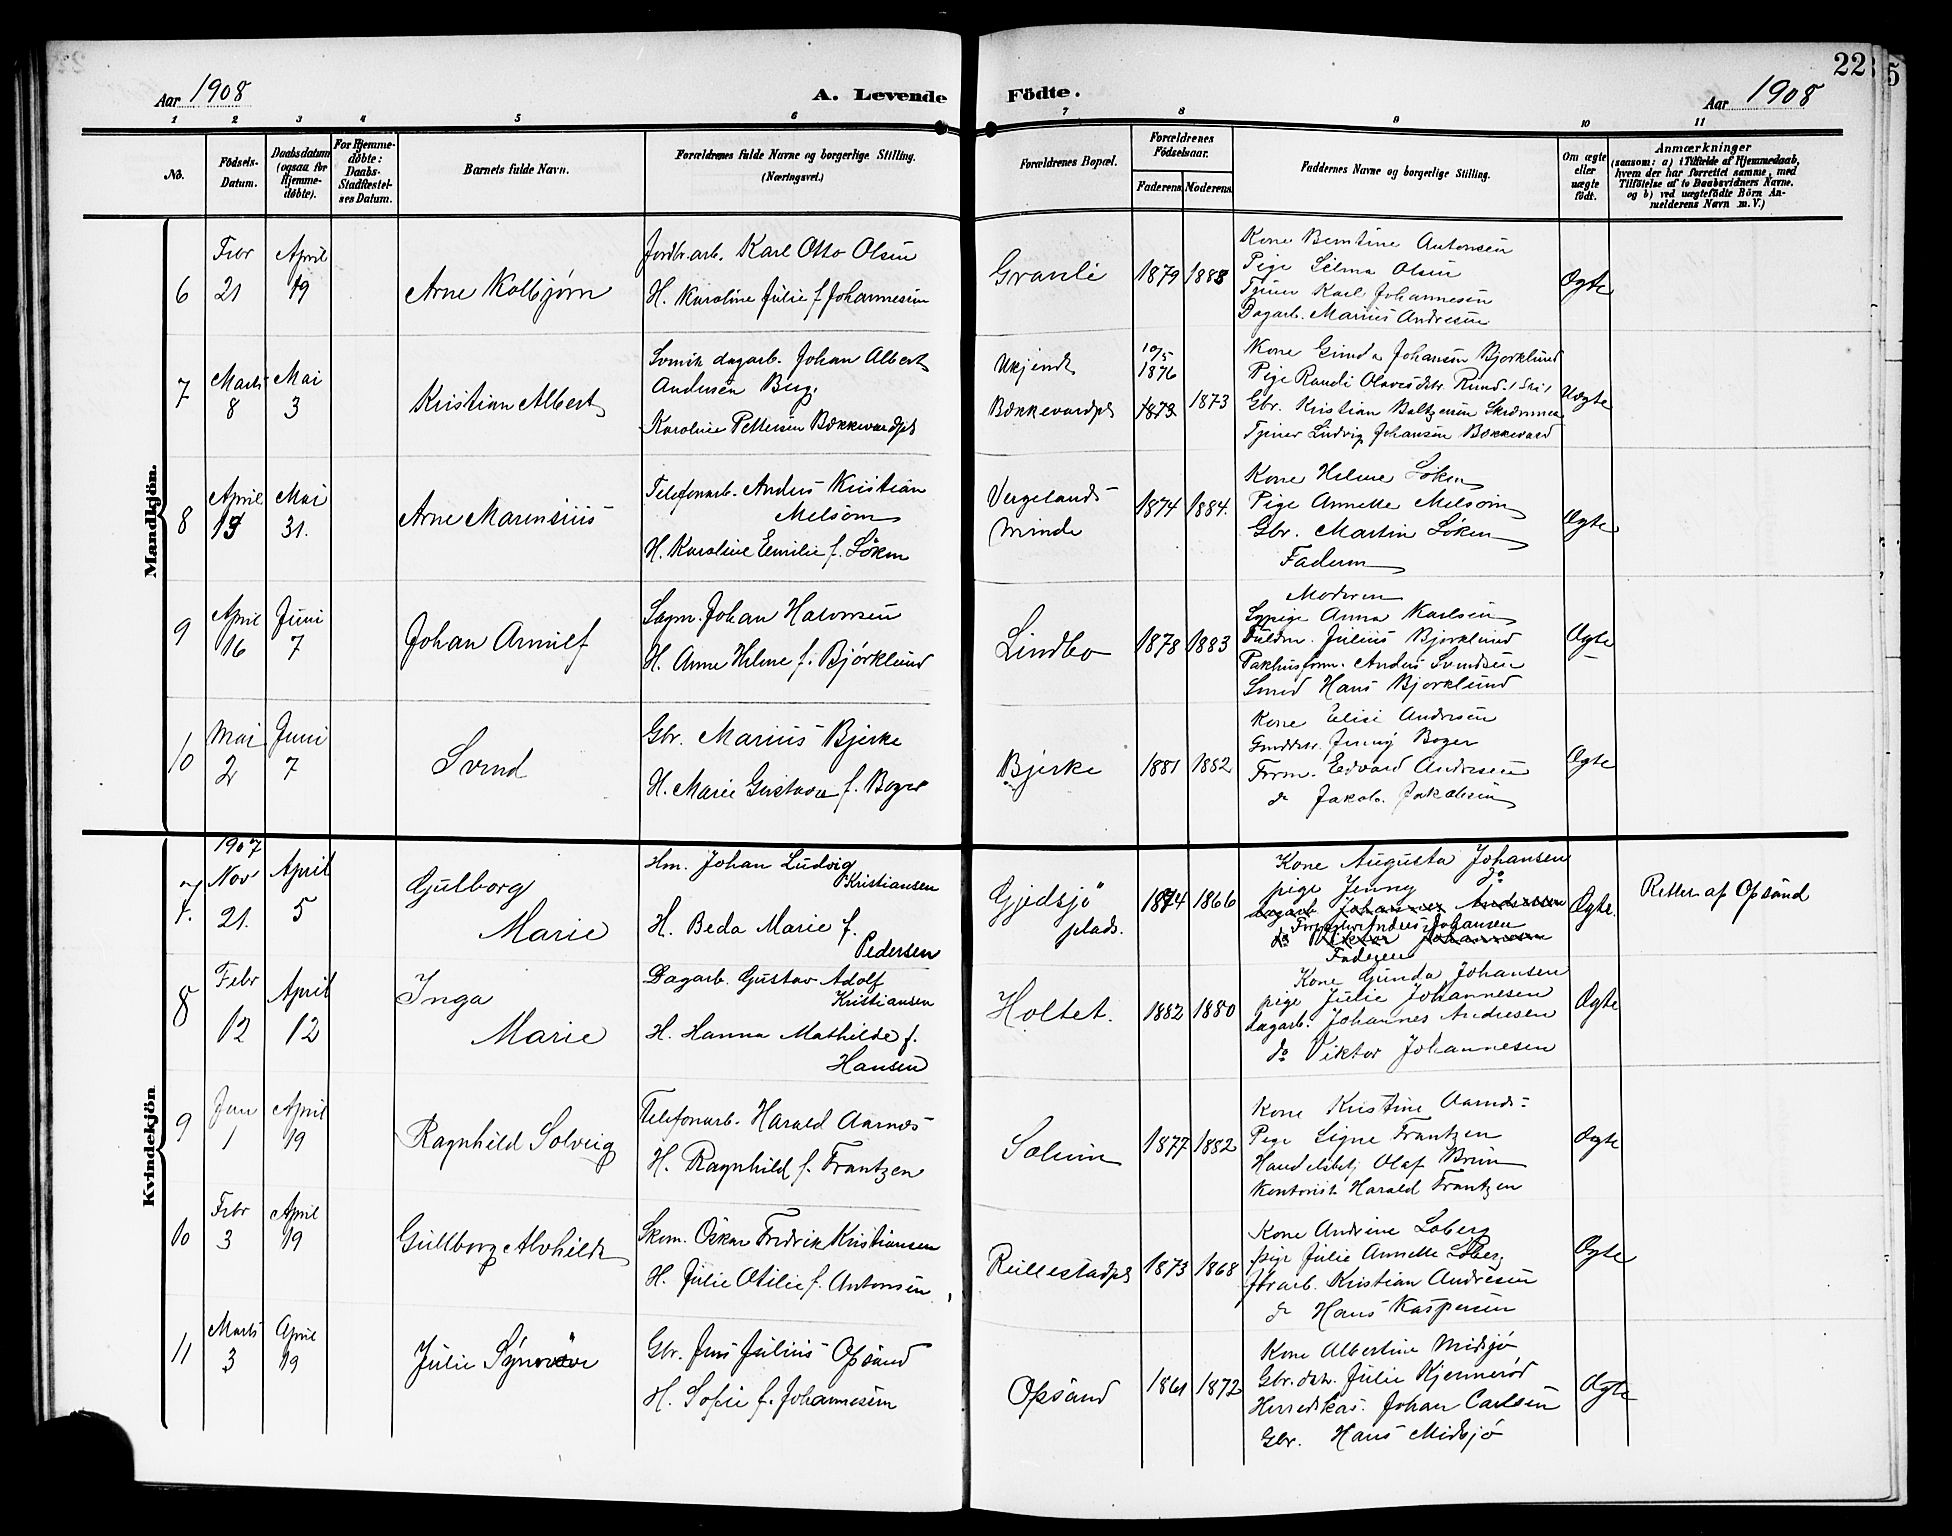 22
5
Aar 1908
A. Levende Födte.
Aar 1908
1 2 3 4 5 6 7 8 9 10 11
No.
Födsels-Datum.
Daabsdatum (ogsaa for Hjemme-döbte).
For Hjemme-döbte: Daabs-Stadfæstel-ses Datum.
Barnets fulde Navn.
Forældrenes fulde Navne og borgerlige Stilling. (Næringsvei.)
Forældrenes Bopæl.
Forældrenes Födselsaar.
Faderens. Moderens.
Faddernes Navne og borgerlige Stilling.
Om ægte eller uægte født.
Anmærkninger
(saasom: a) i Tilfælde af Hjemmedaab,
hvem der har forrettet samme, med
Tilföielse af to Daabsvidners Navne.
og b) ved uægtefödte Börn An-
melderens Navn m. V.)
Mandkjön.
6
Febr 21
April 19
Arne Kolbjørn
Jordbr.arb. Karl Otto Olsen
H. Karoline Julie f. Johannesen
Granli
1879 1888
Kone Berntine Antonsen
Pige Selma Olsen
Tjener Karl Johannesen
Dagarb. Marius Andresen
Ægte
7
Marts 8
Mai 3
Kristian Albert
Svensk dagarb. Johan Albert
Andersen Berg.
Karoline Pettersen Bækkevardpl
Ukjendt
Bækkevardpl
10/5 1876
1873 1873
Kone Gunda Johansen Bjorklund
Pige Randi Olavesdtr. Rund. (Ski)
Gbr. Kristian Baltzersen
Tjener Ludvig Johansen Bækkevard
Uægte
8
April 15
Mai 31.
Arne Marensius
Telefonarb. Anders Kristian
Melsom
H. Karoline Emilie f. Löken
Vergelands
minde
1874 1884.
Kone Helene Löken
Pige Annette Melsom
Gbr. Martin Löken
Faderen
Ægte
9
April 16
Juni 7
Johan Arnulf
Sagm. Johan Halvorsen
H. Anne Helene f. Björklund
Lindbo
1878 1883
Moderen
Sypige Anna Karlsen
Fuldm. Julius Bjorklund
Pakhusform. Anders Svendsen
Smed Hans Bjorklund
Ægte
10
Mai 2
Juni 7
Svend
Gbr. Marius Bjerke
H. Marie Gustava f. Boger
Bjerke
1881 1882
Kone Elise Andresen
Gmddtr. Jenny Boger
Form. Edvard Andresen
do Jakob Jakobsen
Ægte
Kvindekjön
7.
1907 Nov 21.
April 5
Gulborg
Marie
Hm. Johan Ludvig
Kristiansen
H. Beda Marie f.
Pedersen
Gjedsjö
plads.
1874 1866
Kone Augusta Johansen
pige Jenny do
dagarb. Johannes Andresen
Forpagter Anders Johansen
do Viktor Johannesen
Faderen
Ægte.
Rettet af Opsand
8
Febr 12
April 12
Inga
Marie
Dagarb. Gustav Adolf
Kristiansen
H. Hanna Mathilde f.
Hansen
Holtet.
1882 1880
Kone Gunda Johansen
pige Julie Johannesen
dagarb. Johannes Andresen
do Viktor Johannesen
Ægte
9
Jan 1
April 19
Ragnhild Solveig
Telefonarb. Harald Aarnes
H. Ragnhild f. Frantzen
Solheim
1877 1882
Kone Kristine Aarnes
Pige Signe Frantzen
Handelsbetj Olaf Brun
Kontorist Harald Frantzen
Ægte
10
Febr 3
April 19
Gullborg Alvhilde
Skom. Oskar Fredrik Kristiansen
H. Julie Otilie f. Antonsen
Reillestadpl
1873 1868
Kone Andrine Loberg
pige Julie Annette Loberg
Jbrarb. Kristian Andresen
do Hans Kaspersen
Ægte
11
Marts 3
April 19
Julie Synnöve
Gbr. Jens Julius Opsand
H. Sofie f. Johannesen
Opsand
1861 1872
Kone Albertine Midsjö
Gbr.dtr. Julie Kjennerød
Herredskas. Johan Carlsen
Gbr. Hans Midsjö
Ægte